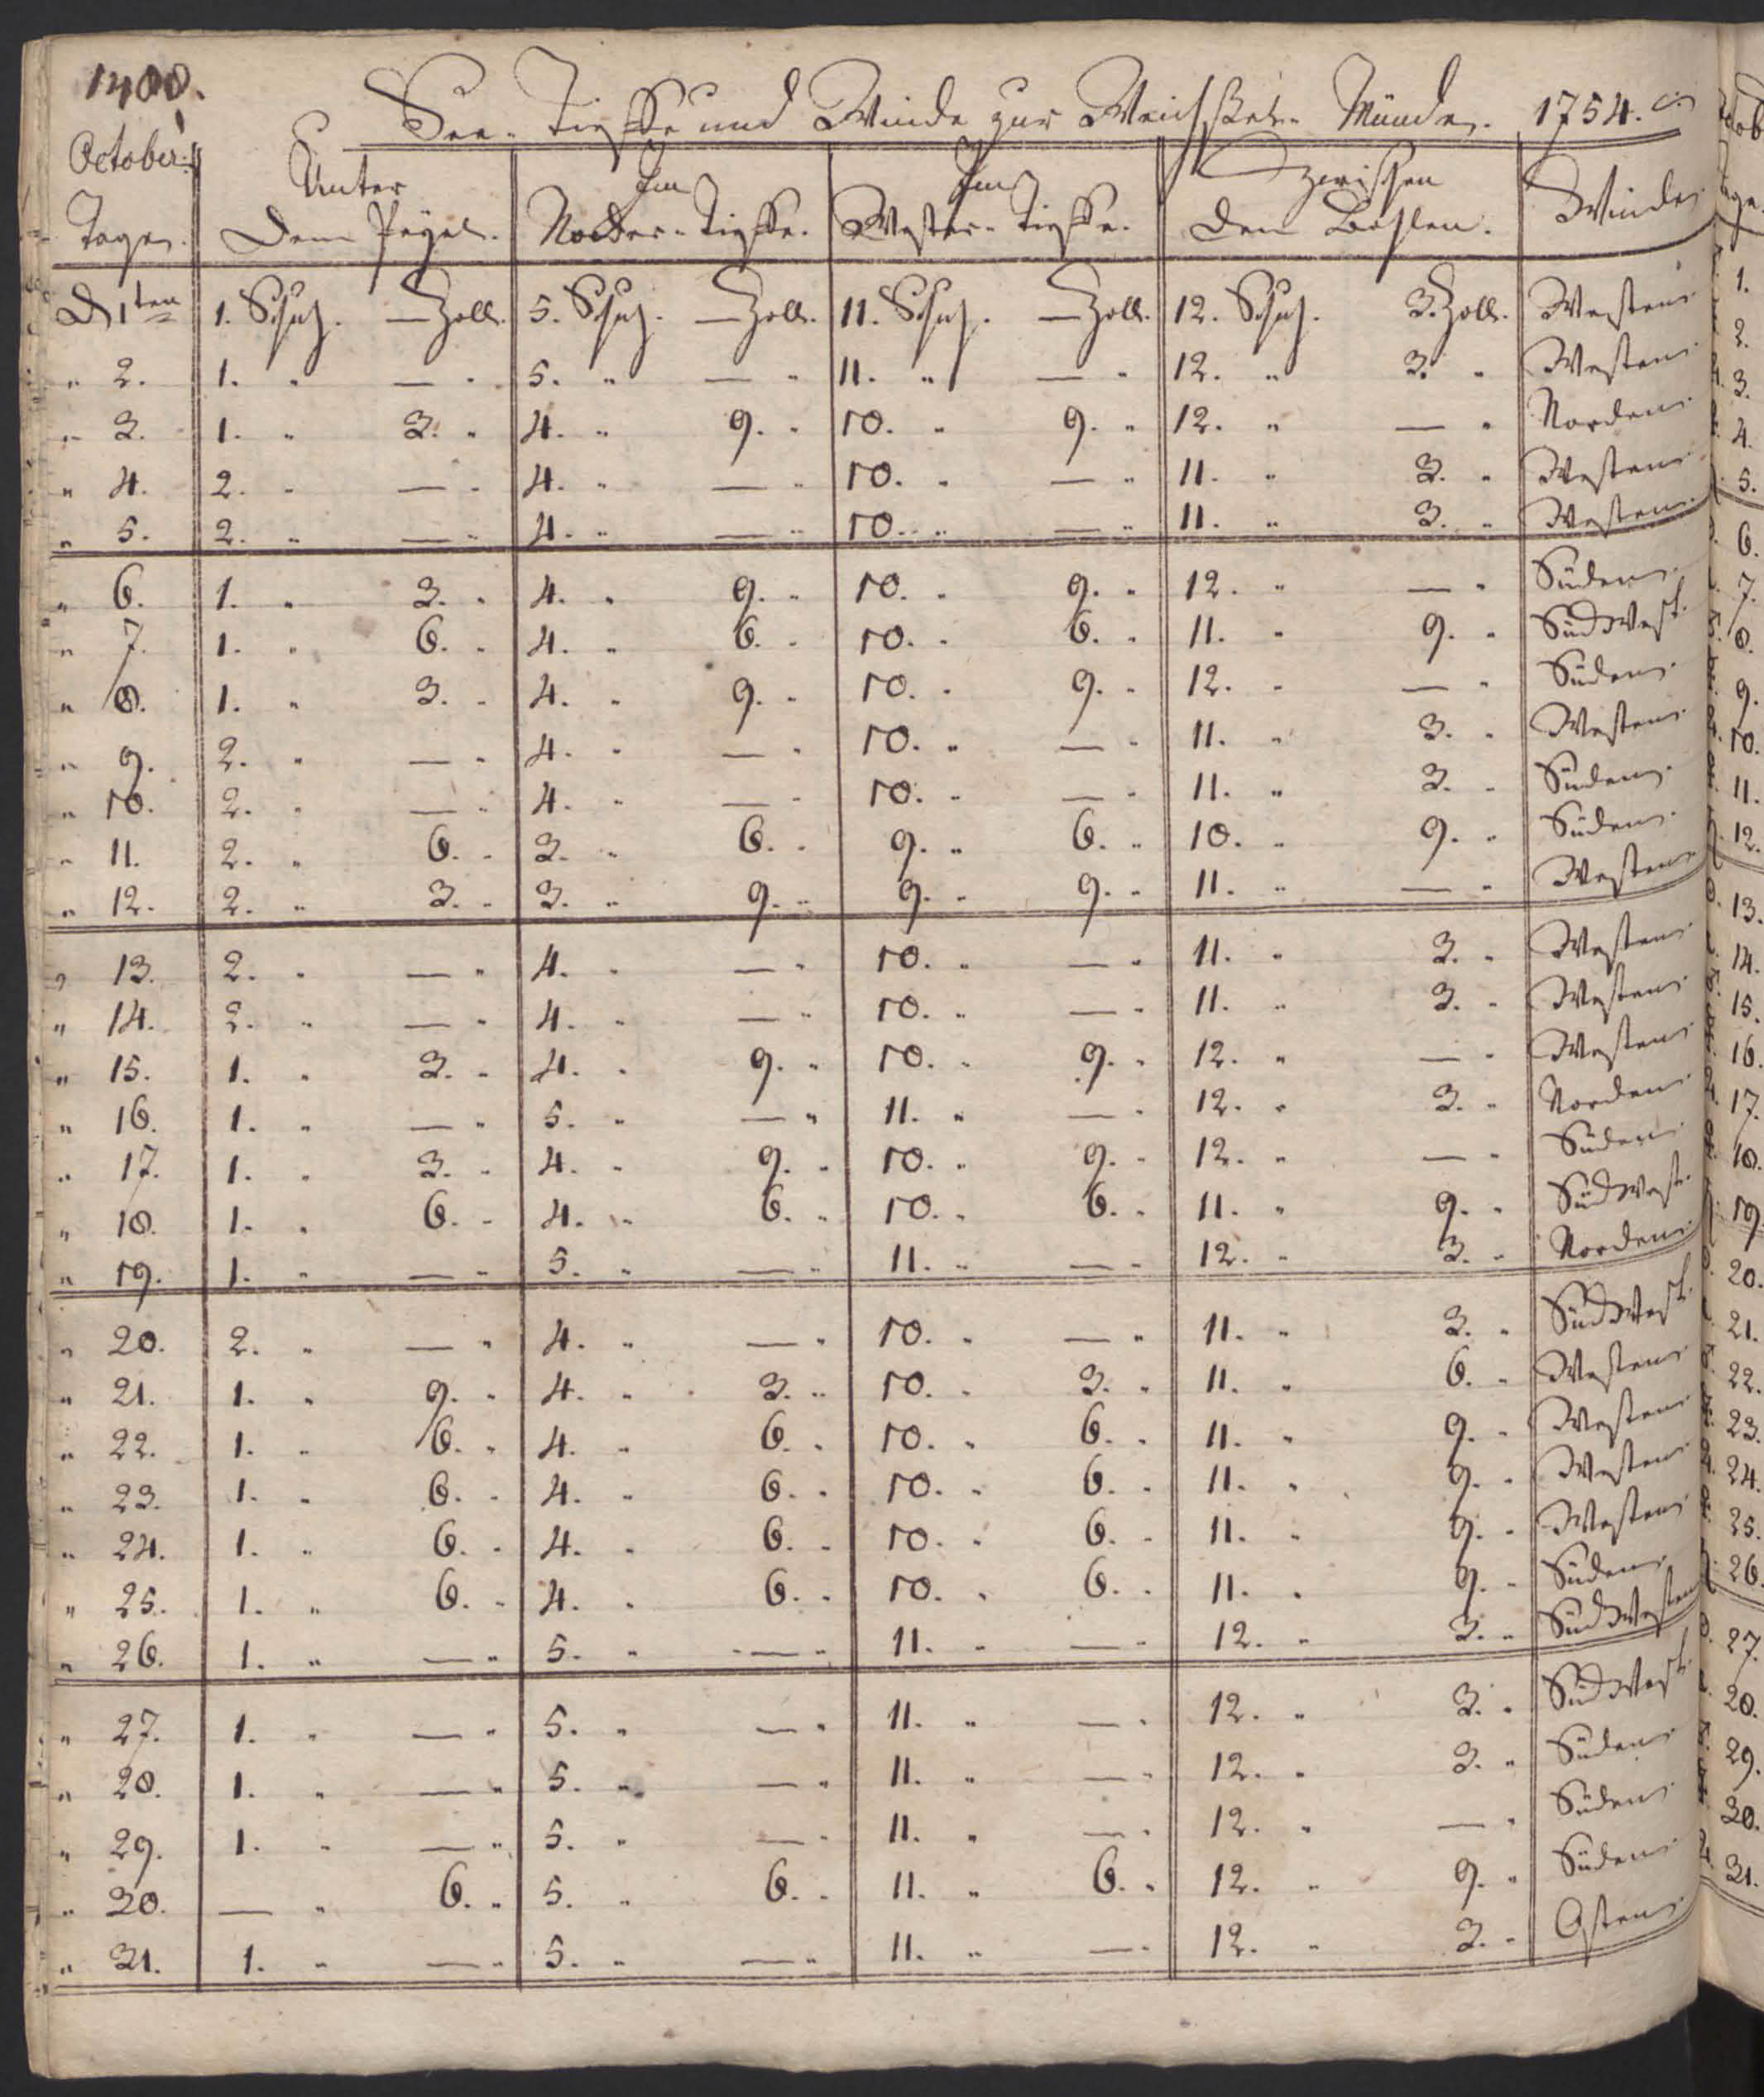 1408.
See-Tieffe und Winde zur Weichßel-Münde. 1754.
October:
Tage. Unter Dem Pegel. Im Norder-Tieffe. Im Wester-Tieffe. Zwischen den Bohlen. Winde
D 1ten 1. Schuh. — Zoll. 5. Schuh. — Zoll. 11. Schuh. — Zoll. 12. Schuh. 3. Zoll. Westen
" 2. 1. " — " 5. " — " 11. " — " 12. " 3. " Westen
" 3. 1. " 3. " 4. " 9. " 10. " 9. " 12. " — " Norden
" 4. 2. " — " 4. " — " 10. " — " 11. " 3. " Westen
" 5. 2. " — " 4. " — " 10. " — " 11. " 3. " Westen
" 6. 1. " 3. " 4. " 9. " 10. " 9. " 12. " — " Süden
" 7. 1. " 6. " 4. " 6. " 10. " 6. " 11. " 9. " SüdWest.
" 8. 1. " 3. " 4. " 9. " 10. " 9. " 12. " — " Süden
" 9. 2. " — " 4. " — " 10. " — " 11. " 3. " Westen
" 10. 2. " — " 4. " — " 10. " — " 11. " 3. " Süden
" 11. 2. " 6. " 3. " 6. " 9. " 6. " 10. " 9. " Süden
" 12. 2. " 3. " 3. " 9. " 9. " 9. " 11. " — " Westen
" 13. 2. " — " 4. " — " 10. " — " 11. " 3. " Westen
" 14. 2. " — " 4. " — " 10. " — " 11. " 3. " Westen
" 15. 1. " 3. " 4. " 9. " 10. " 9. " 12. " — " Westen
" 16. 1. " — " 5. " — " 11. " — " 12. " 3. " Norden
" 17. 1. " 3. " 4. " 9. " 10. " 9. " 12. " — " Süden
" 18. 1. " 6. " 4. " 6. " 10. " 6. " 11. " 9. " SüdWest.
" 19. 1. " — " 5. " — " 11. " — " 12. " 3. " Norden
" 20. 2. " — " 4. " — " 10. " — " 11. " 3. " SüdWest.
" 21. 1. " 9. " 4. " 3. " 10. " 3. " 11. " 6. " Westen
" 22. 1. " 6. " 4. " 6. " 10. " 6. " 11. " 9. " Westen
" 23. 1. " 6. " 4. " 6. " 10. " 6. " 11. " 9. " Westen
" 24. 1. " 6. " 4. " 6. " 10. " 6. " 11. " 9. " Westen
" 25. 1. " 6. " 4. " 6. " 10. " 6. " 11. " 9. " Süden
" 26. 1. " — " 5. " — " 11. " — " 12. " 3. " SüdWesten
" 27. 1. " — " 5. " — " 11. " — " 12. " 3. " SüdWest.
" 28. 1. " — " 5. " — " 11. " — " 12. " 3. " Süden
" 29. 1. " — " 5. " — " 11. " — " 12. " — " Süden
" 30. — " 6. " 5. " 6. " 11. " 6. " 12. " 9. " Süden
" 31. 1. " — " 5. " — " 11. " — " 12. " 3. " Osten
1.
2.
3.
4.
5.
6.
7.
8.
9.
10.
11.
12.
13.
14.
15.
16.
17.
18.
19.
20.
21.
22.
23.
24.
25.
26.
27.
28.
29.
30.
31.